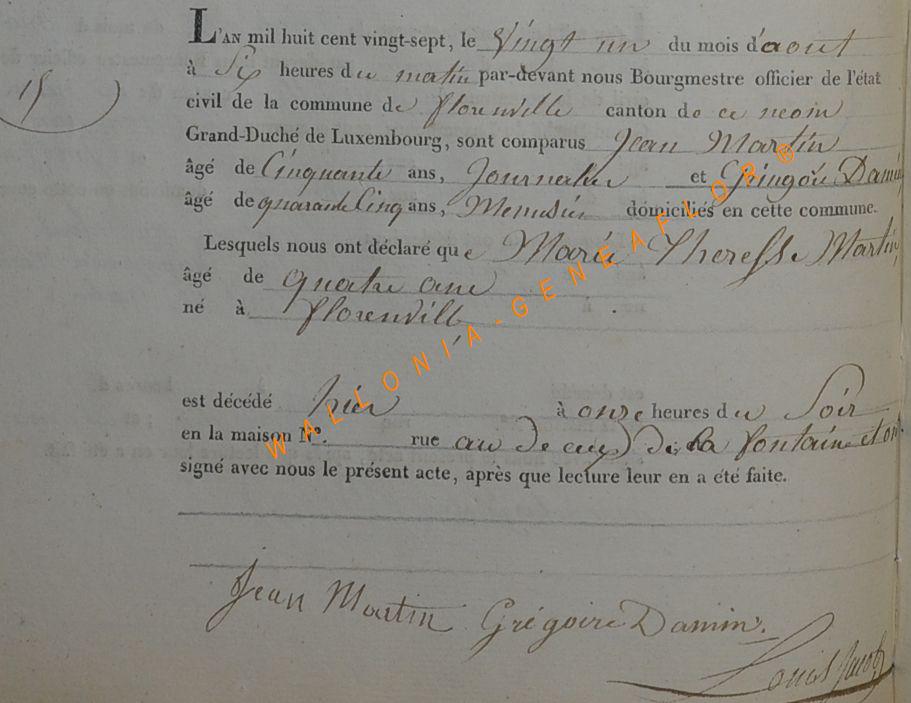 L'AN mil huit cent vingt-sept, le Vingt un du mois d'aout
15
à Six heures du matin par-devant nous Bourgmestre officier de l'état
civil de la commune de florenville canton de ce nom
Grand-Duché de Luxembourg, sont comparus Jean Martin
âgé de Cinquante ans, Journalier et Gringoir Damin
âgé de quarante Cinq ans, Menusier domiciliés en cette commune.
Lesquels nous ont déclaré que Marie Theresse Martin
âgé de quatre ans
né à florenville
est décédé hier à onze heures du Soir
en la maison N°. rue au de de la fontaine et ont
signé avec nous le présent acte, après que lecture leur en a été faite.
Jean Martin Grégoire Damin.
Louis Jacob
WALLONIA-GENEAFLOR ®